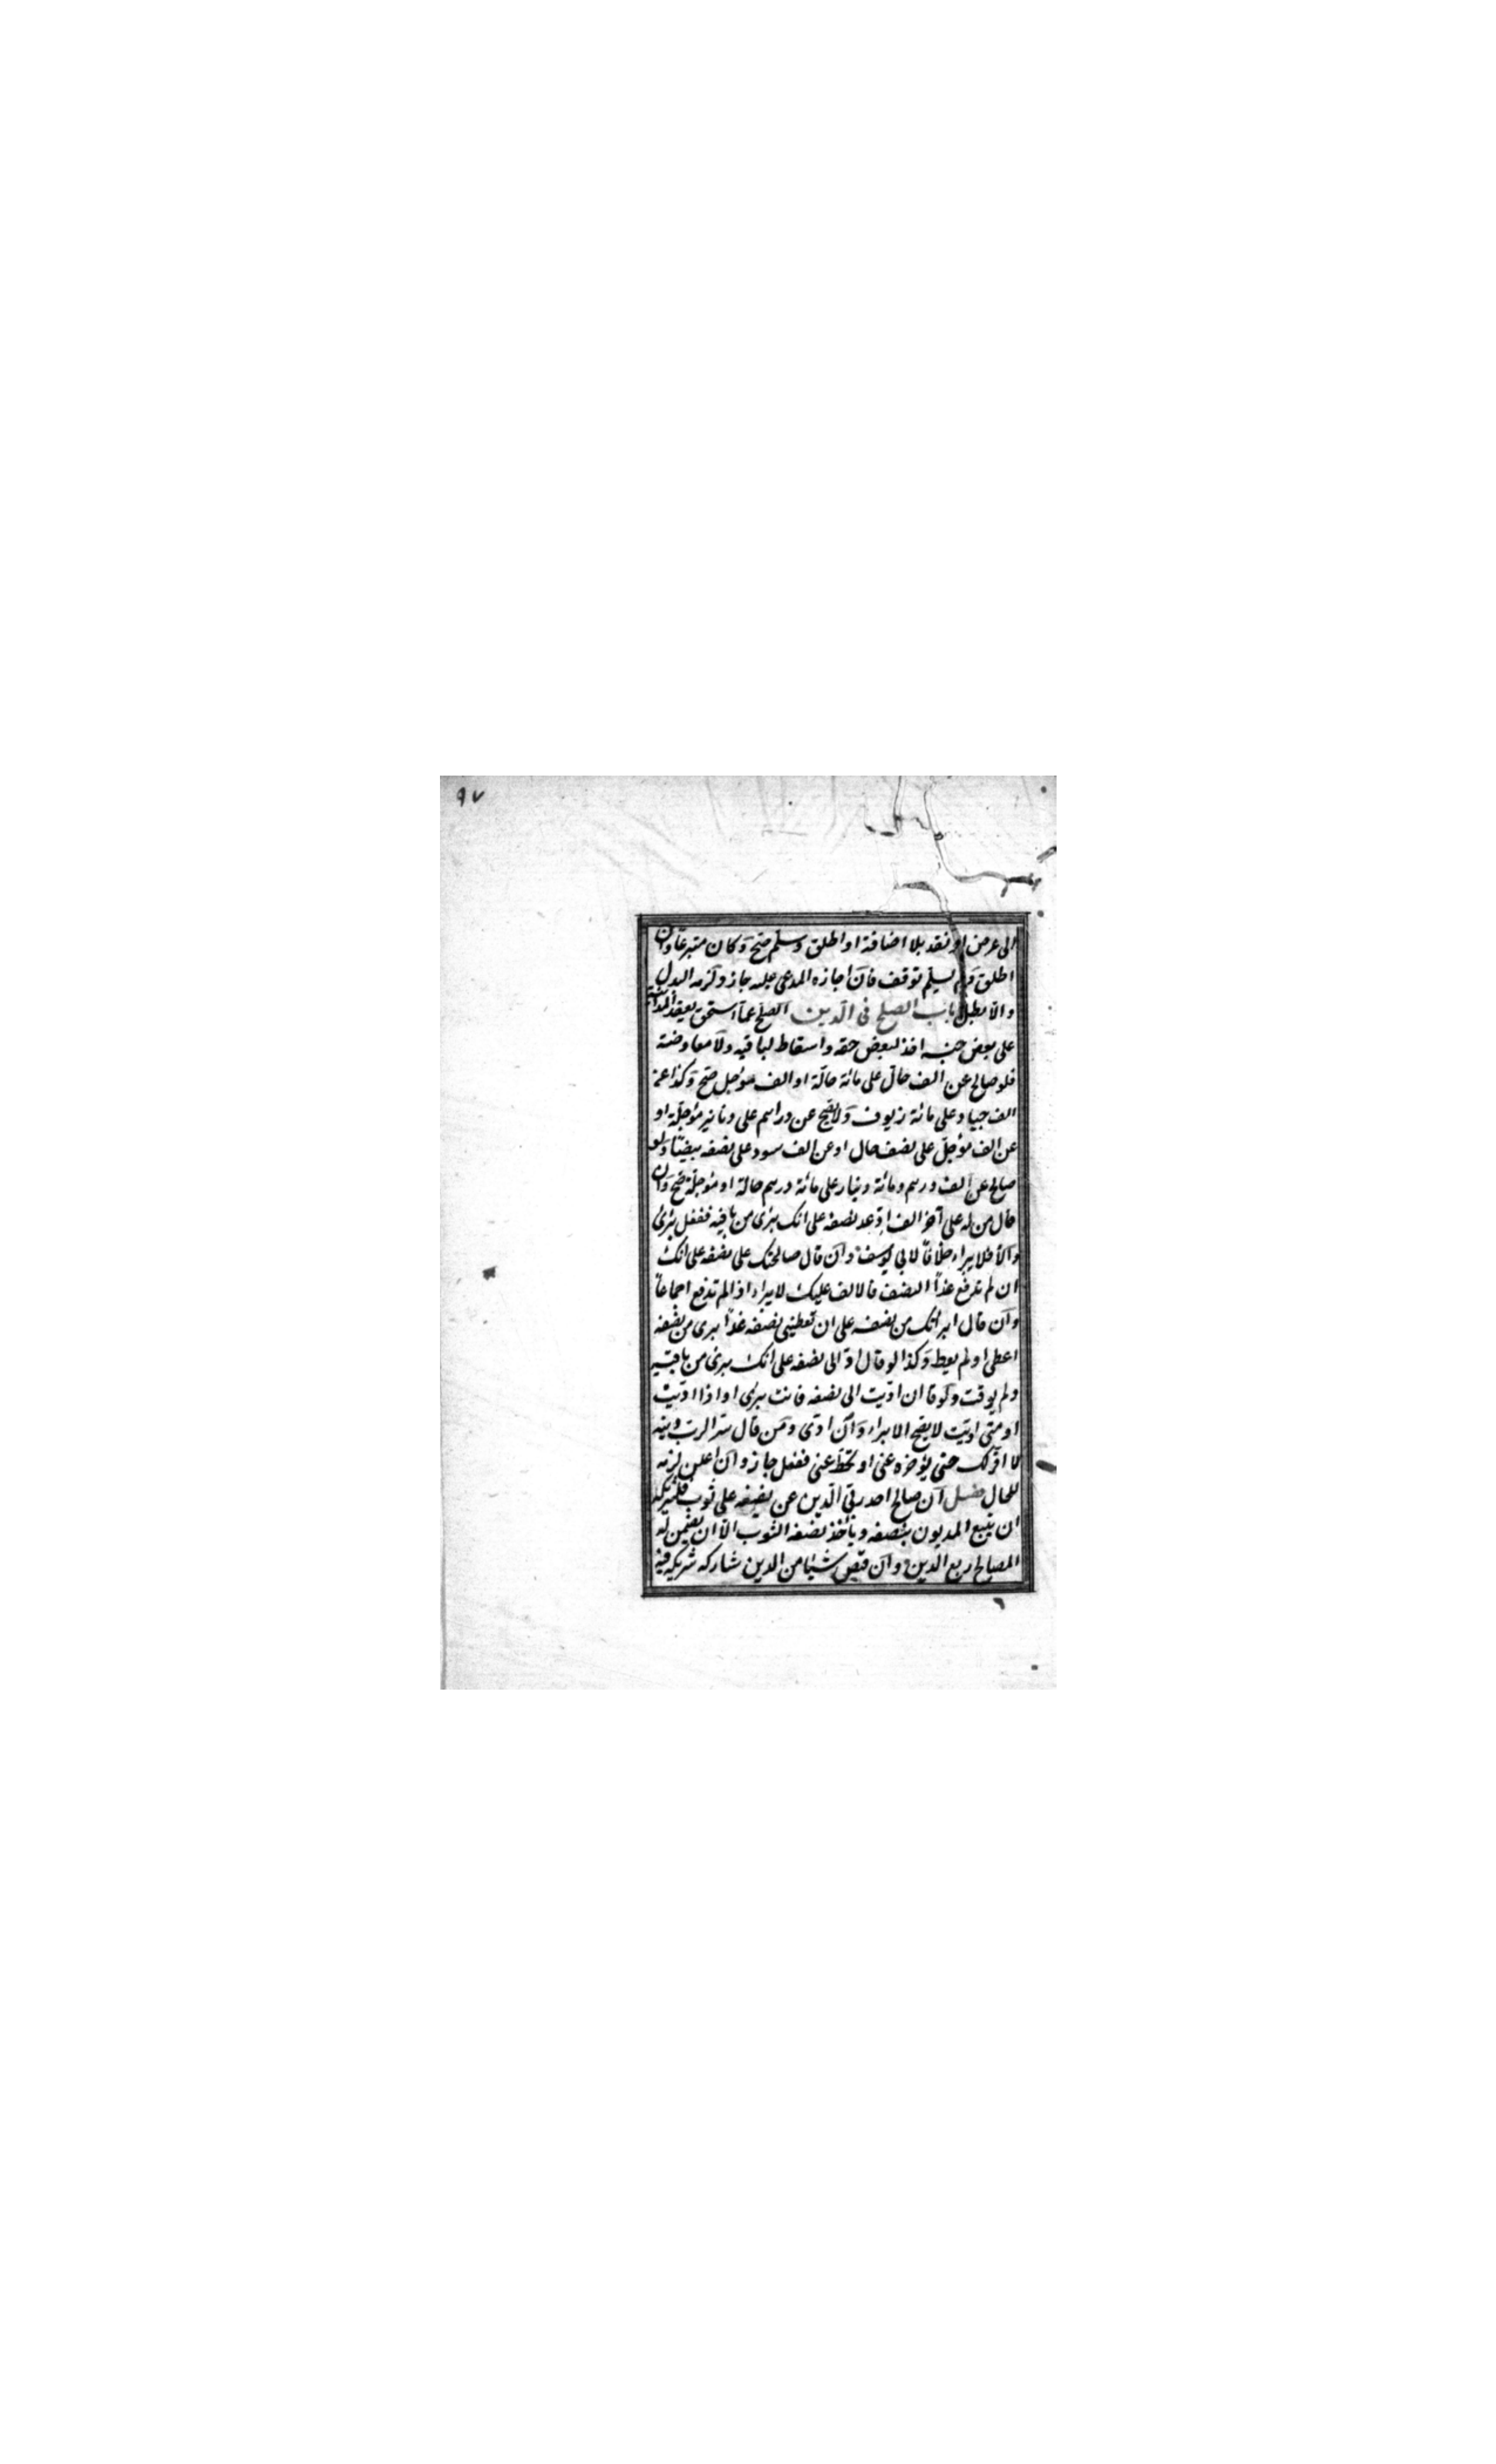 ٩٧
الى عرض او نقد بلا اضافة او اطلق وسلم صح وكان متبرعا وان
اطلق ولم يسلم توقف فان اجازه المدعى عليه جاز ولزمه البدل
والا بطل باب الصلح فى الدين الصلح عما استحق بعقد المداينة
على بعض جنسه اخذ لبعض حقه واسقاط لباقيه ولا معاوضة
فلو صالح عن الف حال على مائة حالة او الف مؤجل صح وكذا عن
الف جياد على مائة زيوف ولا يصح عن دراهم على دنانير مؤجلة او
عن الف مؤجل على نصف حال او عن الف سود على نصفه بيضا ولو
صالح عن الف درهم ومائة دينار على مائة درهم حالة او مؤجلة صح وان
قال من له على آخر الف اد غدا نصفه على انك برئ من باقيه ففعل برئ
والا فلا يبراء خلافا لابي يوسف وان قال صالحتك على نصفه على انك
ان لم تدفع غدا النصف فالالف عليك لا يبراء اذا لم تدفع اجماعا
وان قال ابرأتك من نصفه على ان تعطينى نصفه غدا برئ من نصفه
اعطى او لم يعط وكذا لو قال اد الى نصفه على انك برئ من باقيه
ولم يوقت ولو قا ان اديت الى نصفه فانت برئ او اذا اديت
او متى اديت لا يصح الابراء وان ادى ومن قال سرا لرب دينه
لا اقر لك حتى تؤخره عنى او تحط عنى ففعل جاز وان اعلن لزمه
للحال فصل ان صالح احد ربى الدين عن نصفه على ثوب فلشريكه
ان يتبع المديون بنصفه ويأخذ نصف الثوب الا ان يضمن له
المصالح ربع الدين وان قبض شيئا من الدين شاركه شريكه فيه